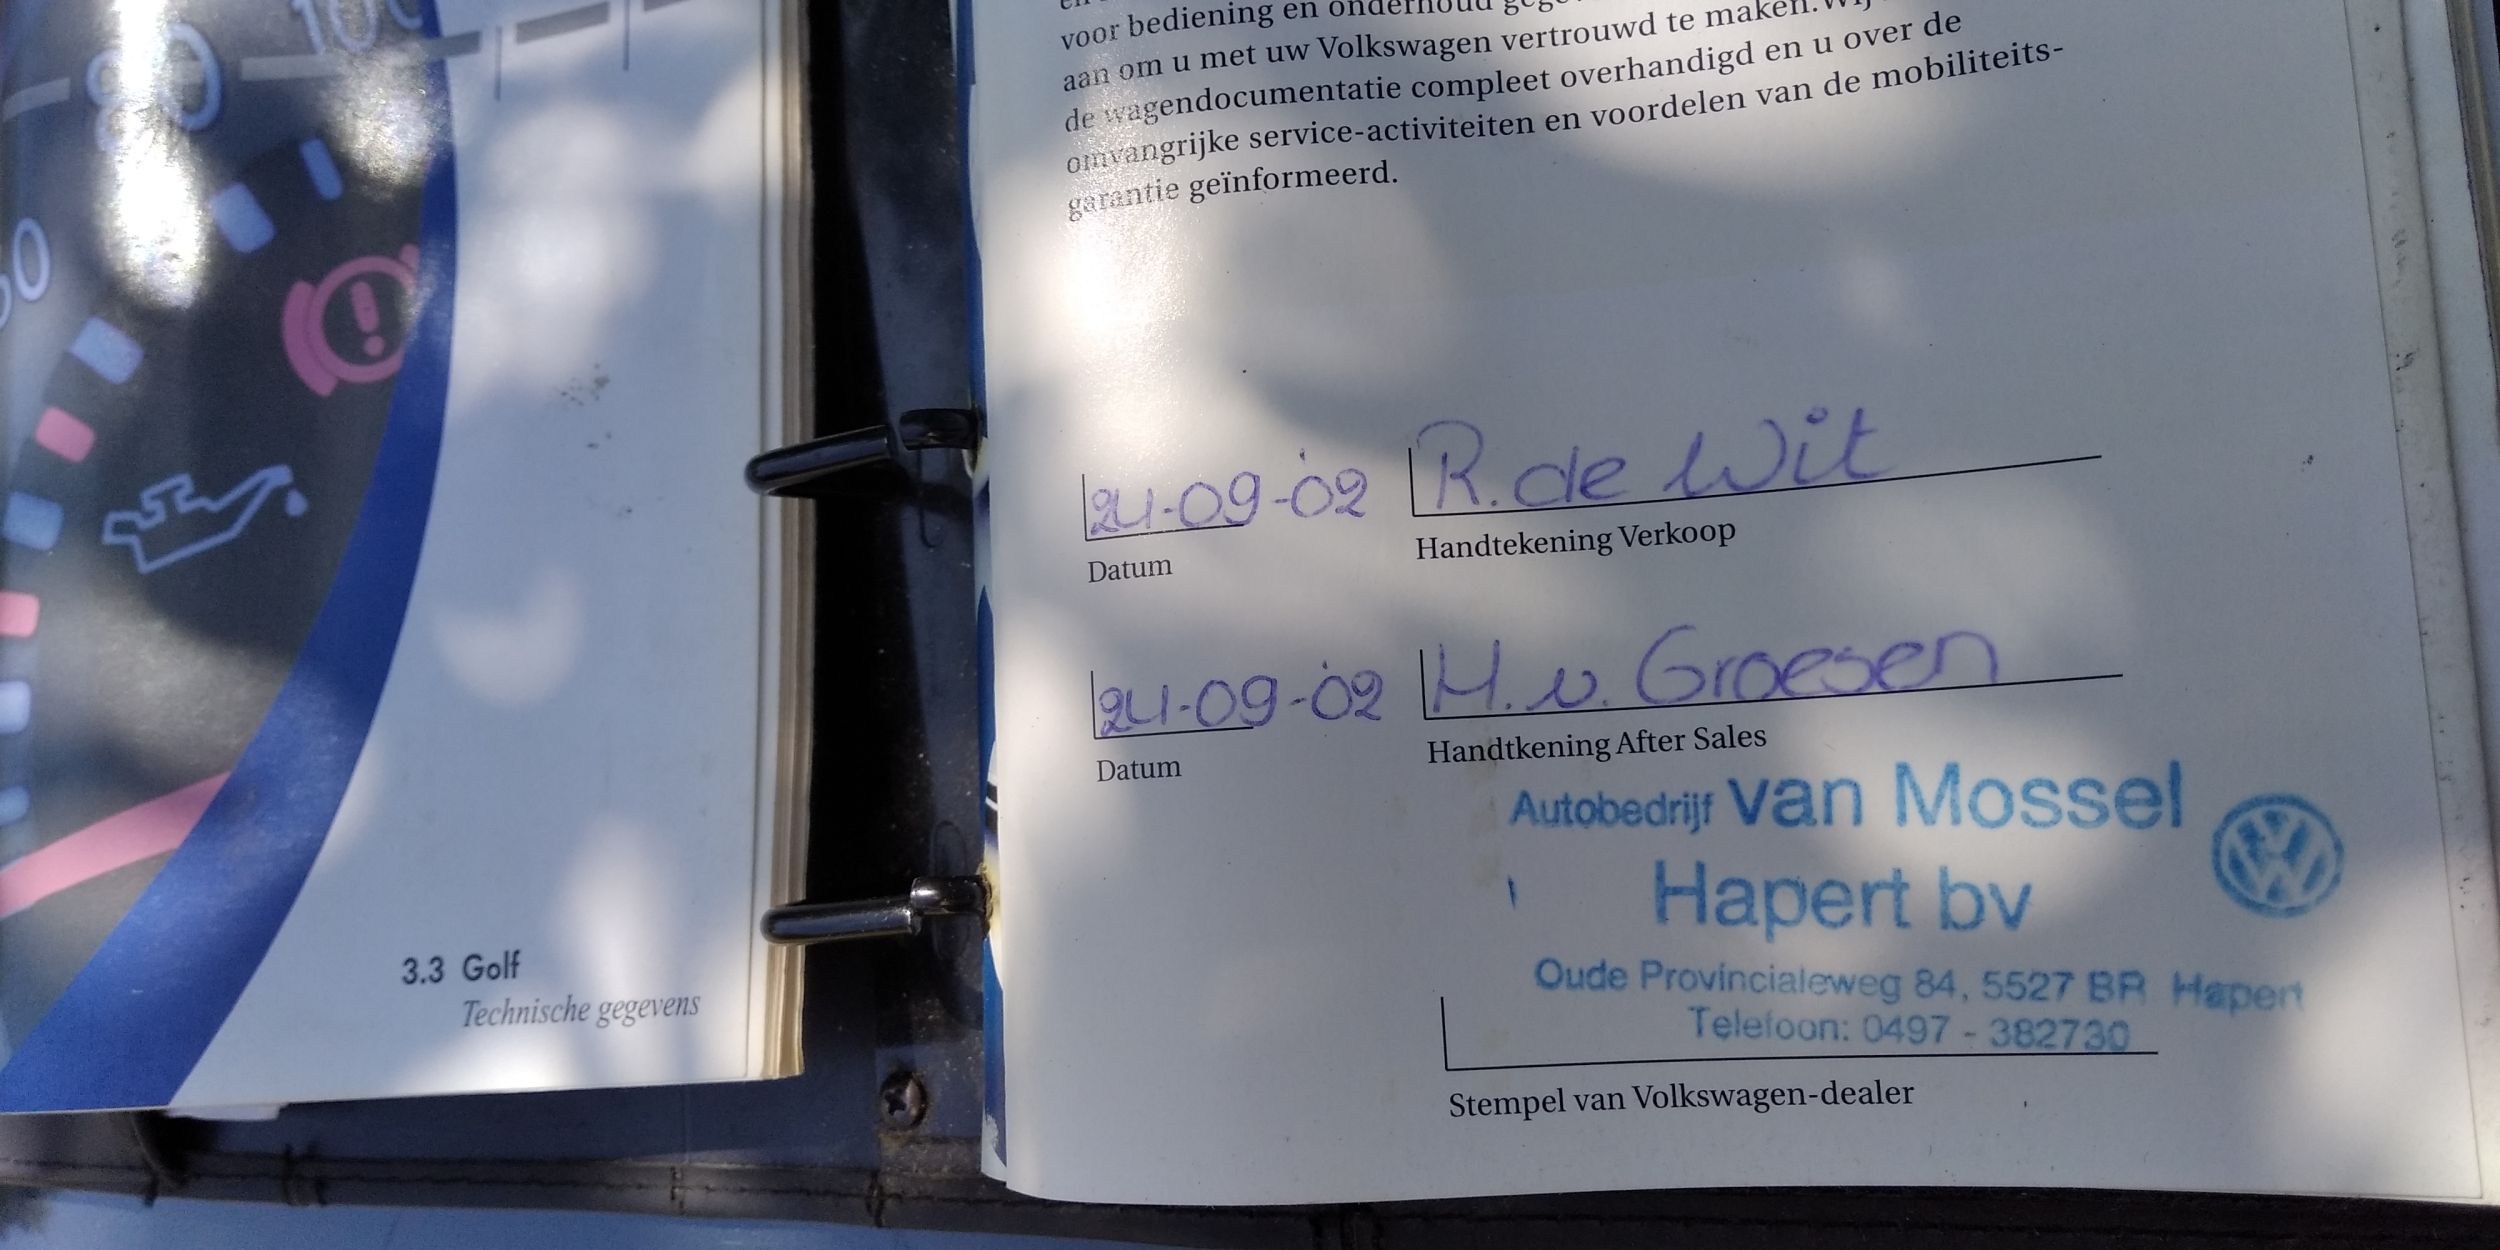 80
100
3.3 Golf
Technische gegevens
voor bediening en onderhoud
aan om u met uw Volkswagen vertrouwd te maken.
de wagendocumentatie compleet overhandigd en u over de
omvangrijke service-activiteiten en voordelen van de mobiliteits-
garantie geïnformeerd.
24-09-02 R. de Wit
Datum Handtekening Verkoop
24-09-02 H. v. Groesen
Datum Handtkening After Sales
Autobedrijf van Mossel
Hapert bv
Oude Provincialeweg 84, 5527 BR Hapert
Telefoon: 0497 - 382730
Stempel van Volkswagen-dealer